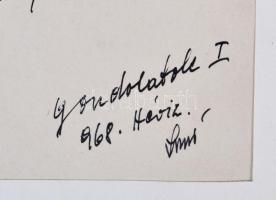 Gondolatok I
968. Hévíz.